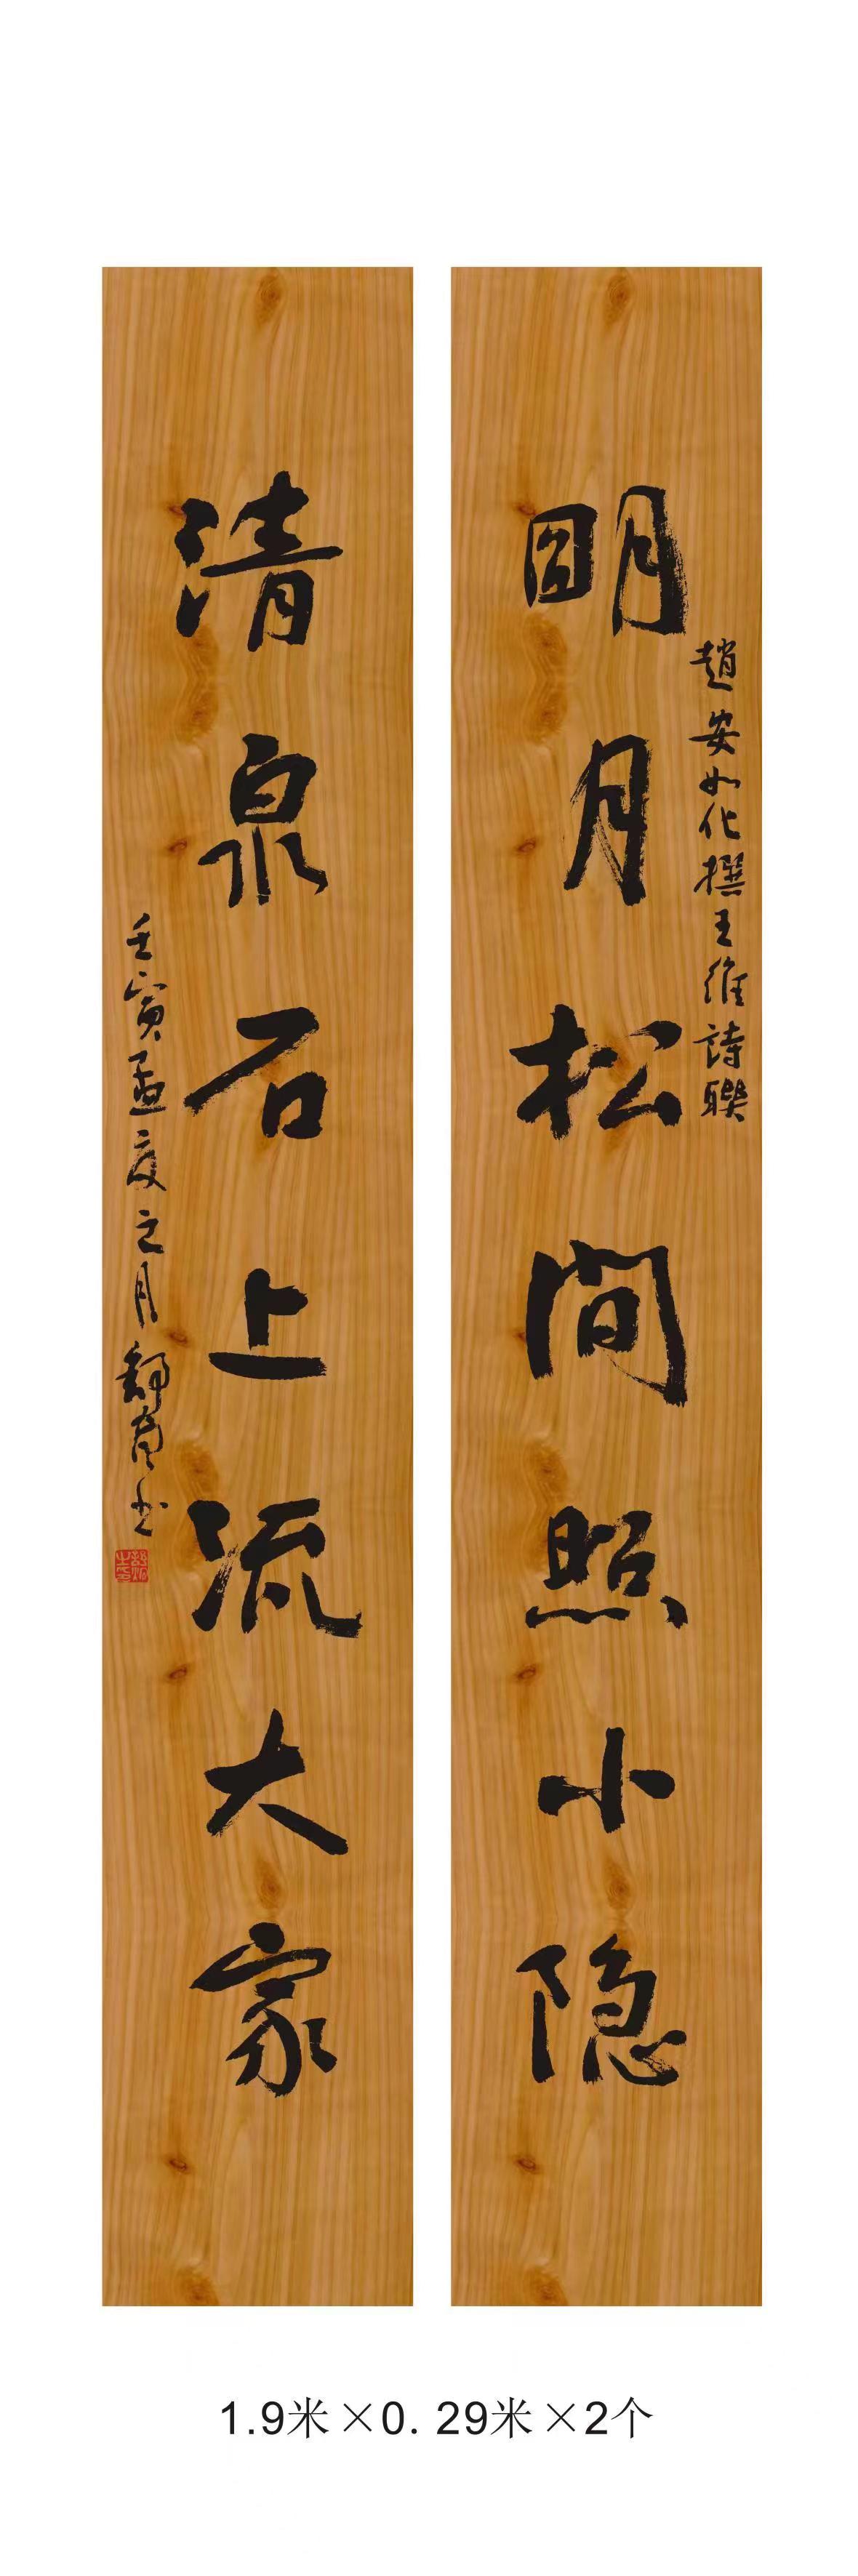 明月松间照小隐
趙安如化撰王維詩聯
清泉石上流大家
壬寅孟夏之月舒育书
1.9米×0.29米×2个